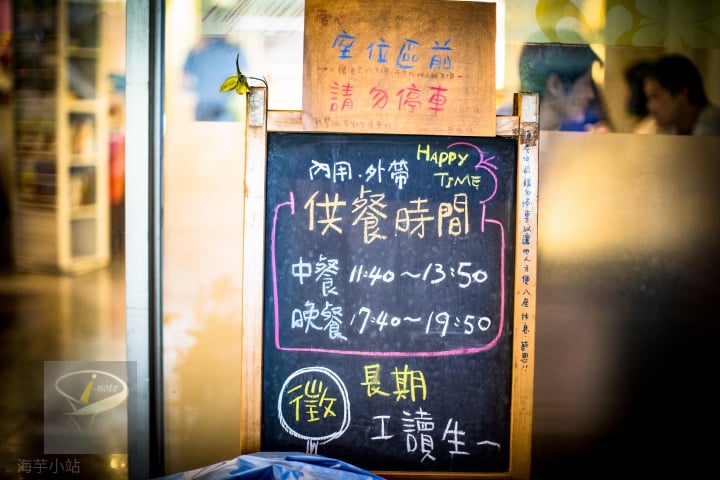 愛心
座位區前
請勿停車
內用.外帶
HAPPY
TIME
供餐時間
中餐 11:40～13:50
晚餐 17:40～19:50
徵 長期
工讀生～
i-note
海芋小站